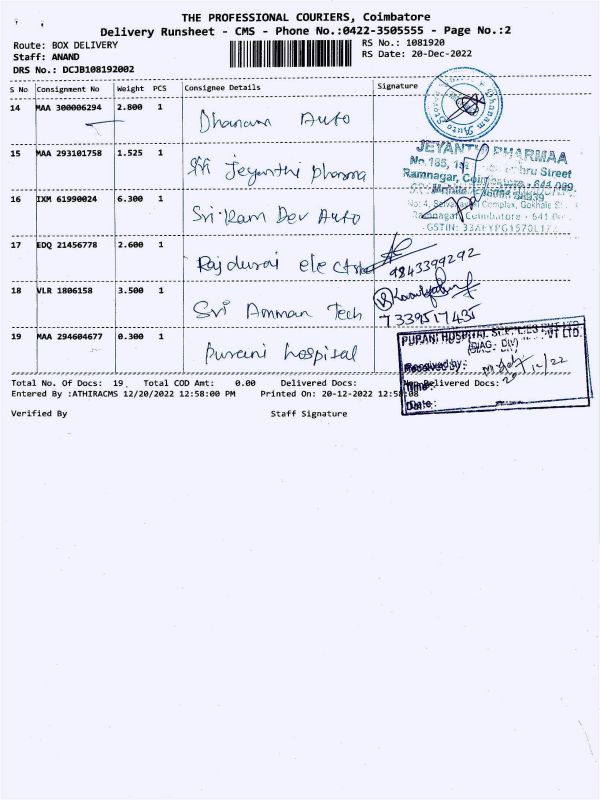 THE PROFESSIONAL COURIERS, Coimbatore
Delivery Runsheet - CMS - Phone No.:0422-3505555 - Page No.:2
Route: BOX DELIVERY
RS No.: 1081920
Staff: ANAND
RS Date: 20-Dec-2022
DRS No.: DCJB108192002
S No Consignment No Weight PCS Consignee Details Signature
14 MAA 300006294 2.800 1 Dhanam Auto
15 MAA 293101758 1.525 1 Sri Jeyanthi pharma
JEYANTHI PHARMAA
Street
Ramnagar,
16 IXM 61990024 6.300 1 Sri Ram Dev Auto
No: 4, Complex, Gokhale St
Ramnagar, Coimbatore - 641
GSTIN:
17 EDQ 21456778 2.600 1 Rajdurai
9843399292
18 VLR 1806158 3.500 1 Sri Amman Tech
7339517431
19 MAA 294604677 0.300 1 Purani hospital
PURANI HOSPITAL SUPPLIES PVT LTD.
(DIAG - DIV)
Received by:
20/12/22
Date:
Total No. Of Docs: 19. Total COD Amt: 0.00 Delivered Docs: Non-Delivered Docs:
Entered By :ATHIRACMS 12/20/2022 12:58:00 PM Printed On: 20-12-2022 12:58:08
Verified By Staff Signature